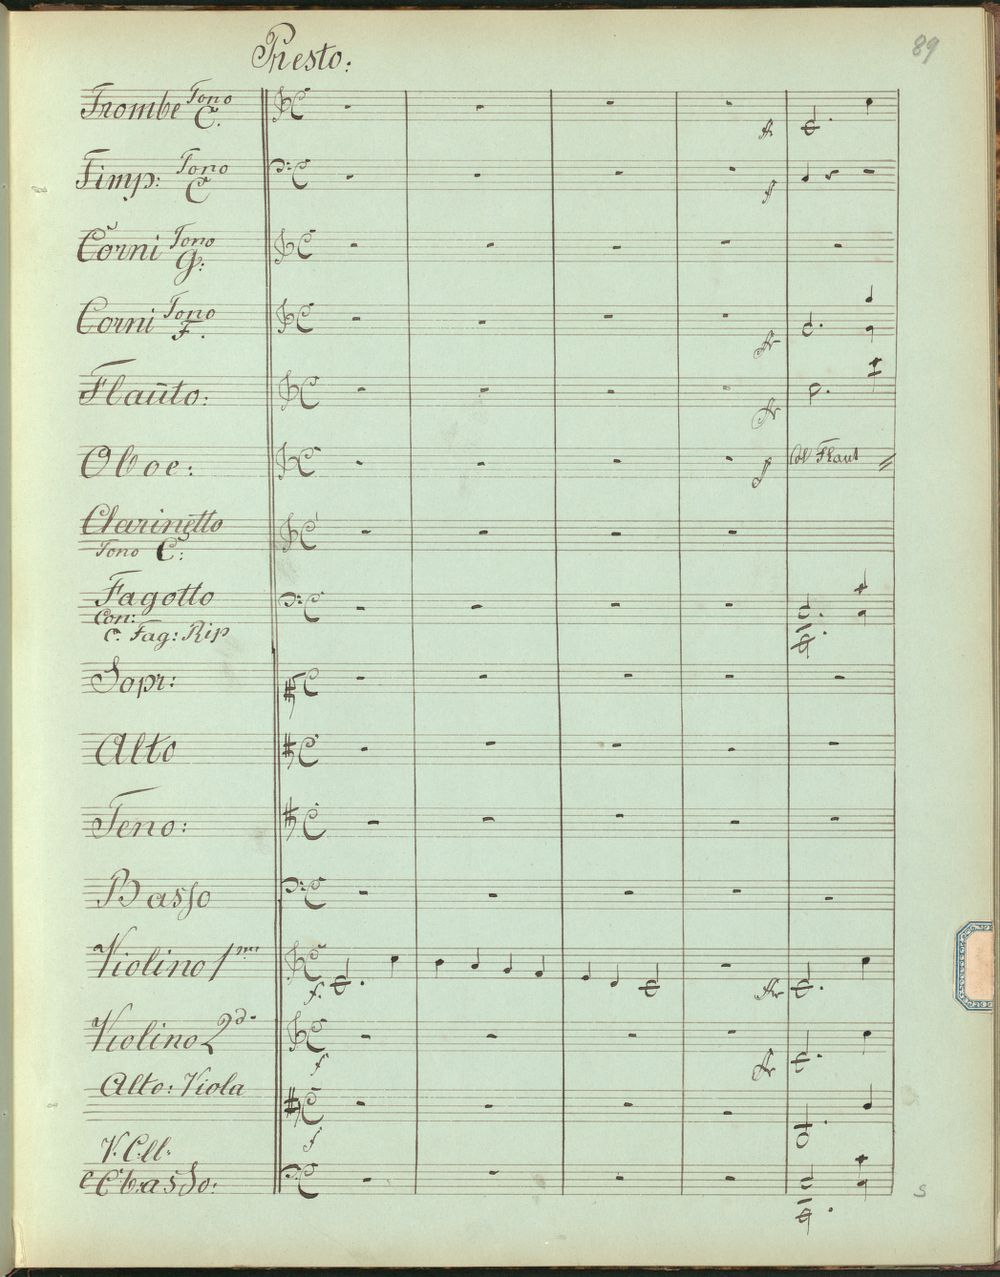 89
Presto:
Trombe Tono C.
Timp: Tono C
Corni Tono G:
Corni Tono F.
fr
f
fr
Flauto:
fr
Oboe:
f
Col Flaut
Clarinetto
Tono C:
Fagotto
Con:
C. Fag: Rip
Sopr:
Alto
Teno:
Basso
Violino 1mo
f.
Violino 2do
f
fr
Alto: Viola
f
V. Cll.
e C'basso:
S